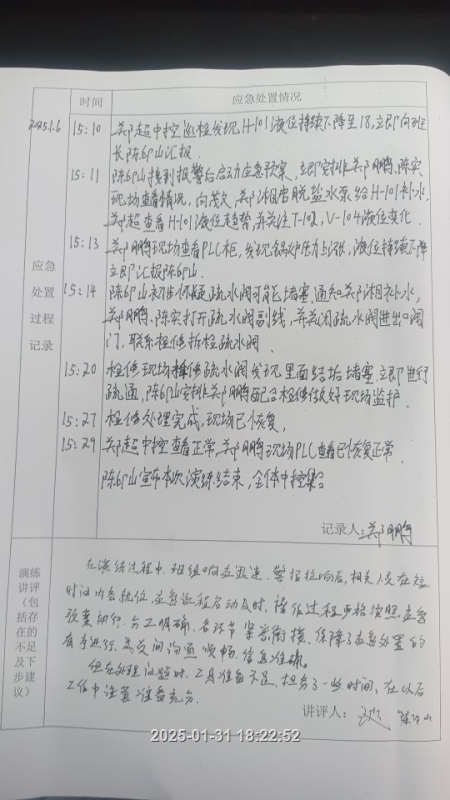 时间 应急处置情况
2025.1.6 15:10 郑超中控巡检发现H-101液位持续下降至18,立即向班
长陈邱山汇报.
15:11 陈邱山接到报警后启动应急预案,立即安排郑鹏鹏、陈实
现场查看情况,向茂父、郑湘启脱盐水泵给H-101补水,
郑超查看H-101液位趋势,并关注T-102,V-104液位变化.
15:13 郑鹏鹏现场查看PLC柜,发现锅炉压力上涨,液位持续下降
立即汇报陈邱山.
15:14 陈邱山初步怀疑疏水阀可能堵塞,通知郑湘补水,
郑鹏鹏、陈实打开疏水阀副线,并关闭疏水阀进出口阀
门,联系检修拆检疏水阀.
15:20 检修现场拆修疏水阀发现里面结垢堵塞,立即进行
疏通,陈邱山安排郑鹏鹏配合检修做好现场监护.
15:27 检修处理完成,现场已恢复,
15:29 郑超中控查看正常,郑鹏鹏现场PLC查看已恢复正常.
陈邱山宣布本次演练结束,全体中控集合
应急
处置
过程
记录
记录人:郑鹏鹏
演练
讲评
(包
括存
在的
不足
及下
步建
议)
在演练过程中,班组响应迅速,警报拉响后,相关人员在短
时间内各就位,应急流程启动及时,操作过程严格按照应急
预案执行,分工明确,各环节紧密衔接,保障了应急处置的
有序进行,员工间沟通顺畅,信息准确.
但在处理问题时,工具准备不足,担务了一些时间,在以后
工作中注意准备充分.
讲评人: 陈邱山
2025-01-31 18:22:52